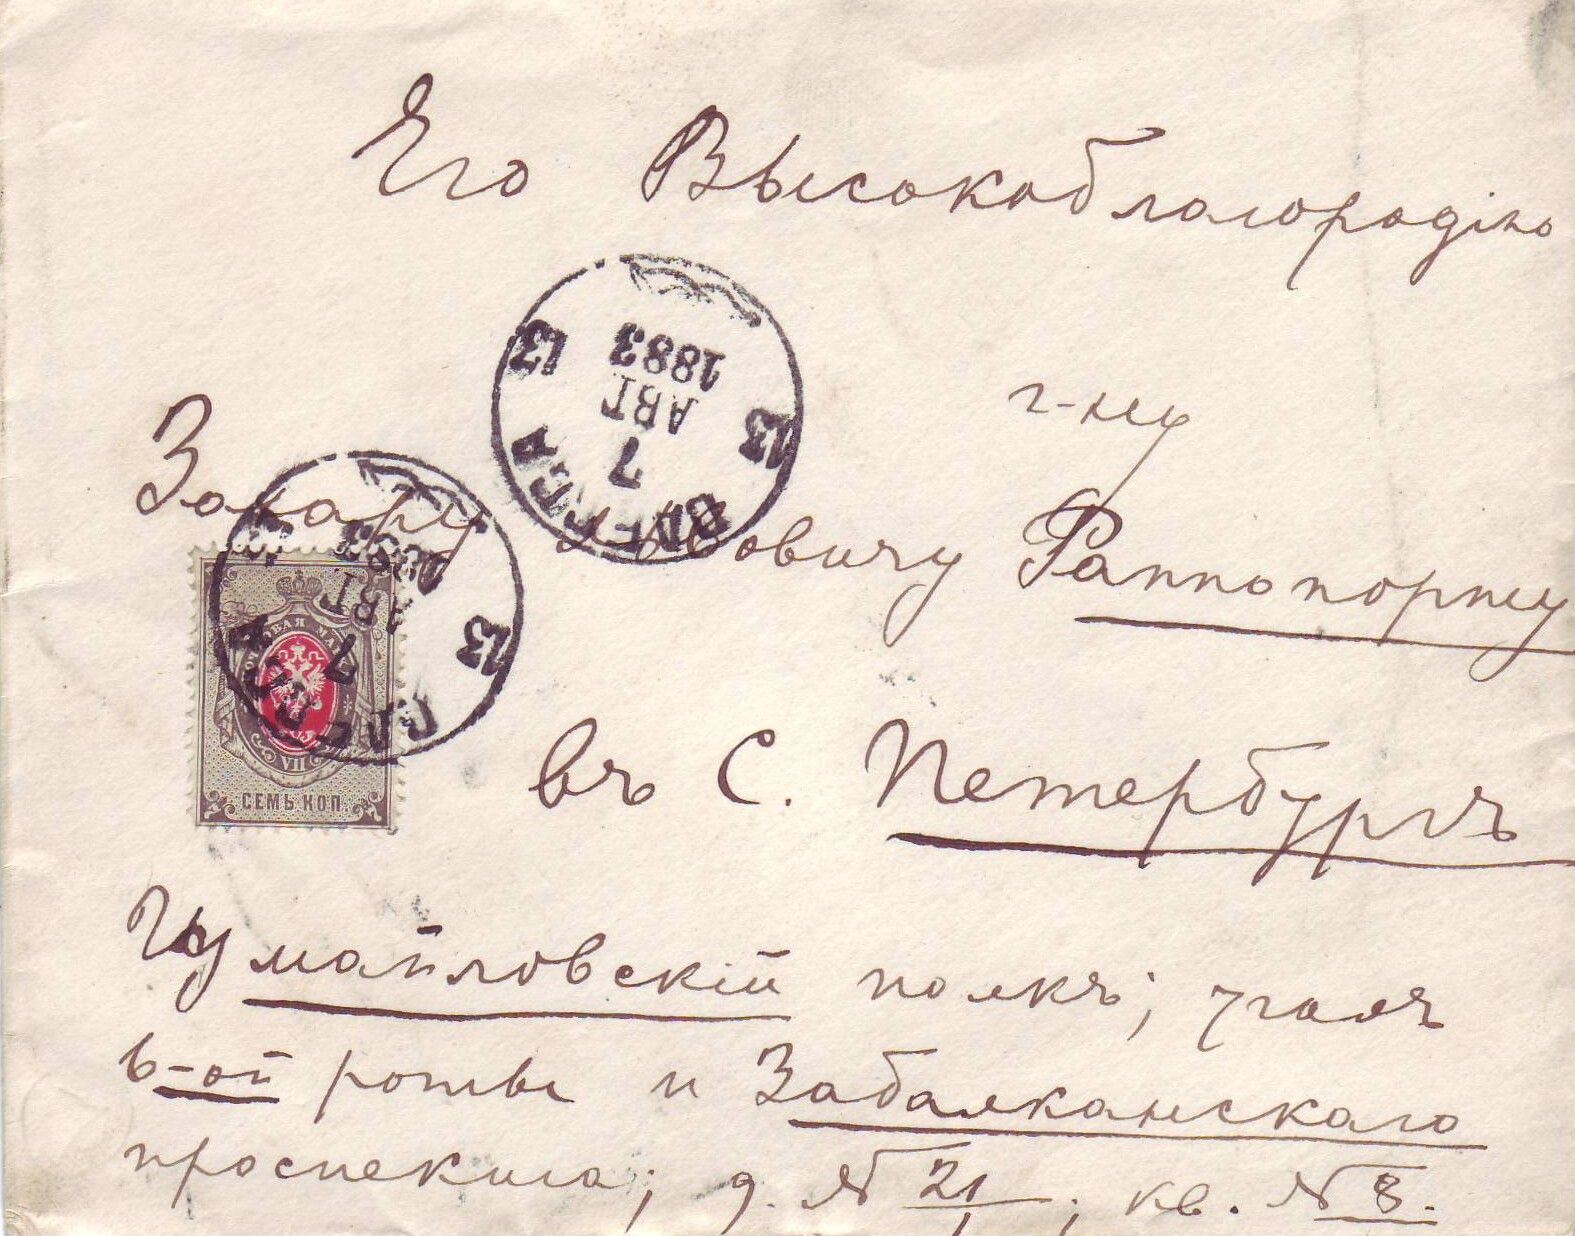 Его Высокоблагородію
г-ну
Захару Львовичу Раппопорту
въ С. Петербургъ
Измайловскій полкъ; уголъ
6-ой роты и Забалканскаго
проспекта; д. № 21, кв. № 8.
13 13
1883
АВГ
7
ОДЕССА
13
1883
АВГ
7
ОДЕССА
ПОЧТОВАЯ МАРКА
VII
СЕМЬ КОП.